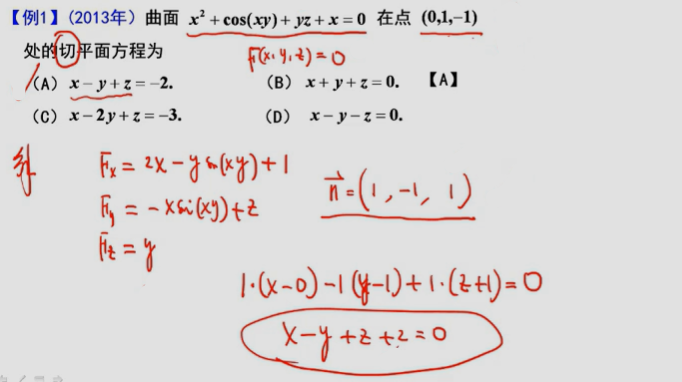 【例1】(2013年) 曲面 x² + cos(xy) + yz + x = 0 在点 (0,1,−1)
处的切平面方程为
F(x,y,z) = 0
(A) x − y + z = −2. (B) x + y + z = 0. 【A】
(C) x − 2y + z = −3. (D) x − y − z = 0.
Fx = 2x − y sin(xy) + 1
n = (1, −1, 1)
Fy = −x sin(xy) + z
Fz = y
1·(x−0) −1(y−1) + 1·(z+1) = 0
x − y + z + 2 = 0